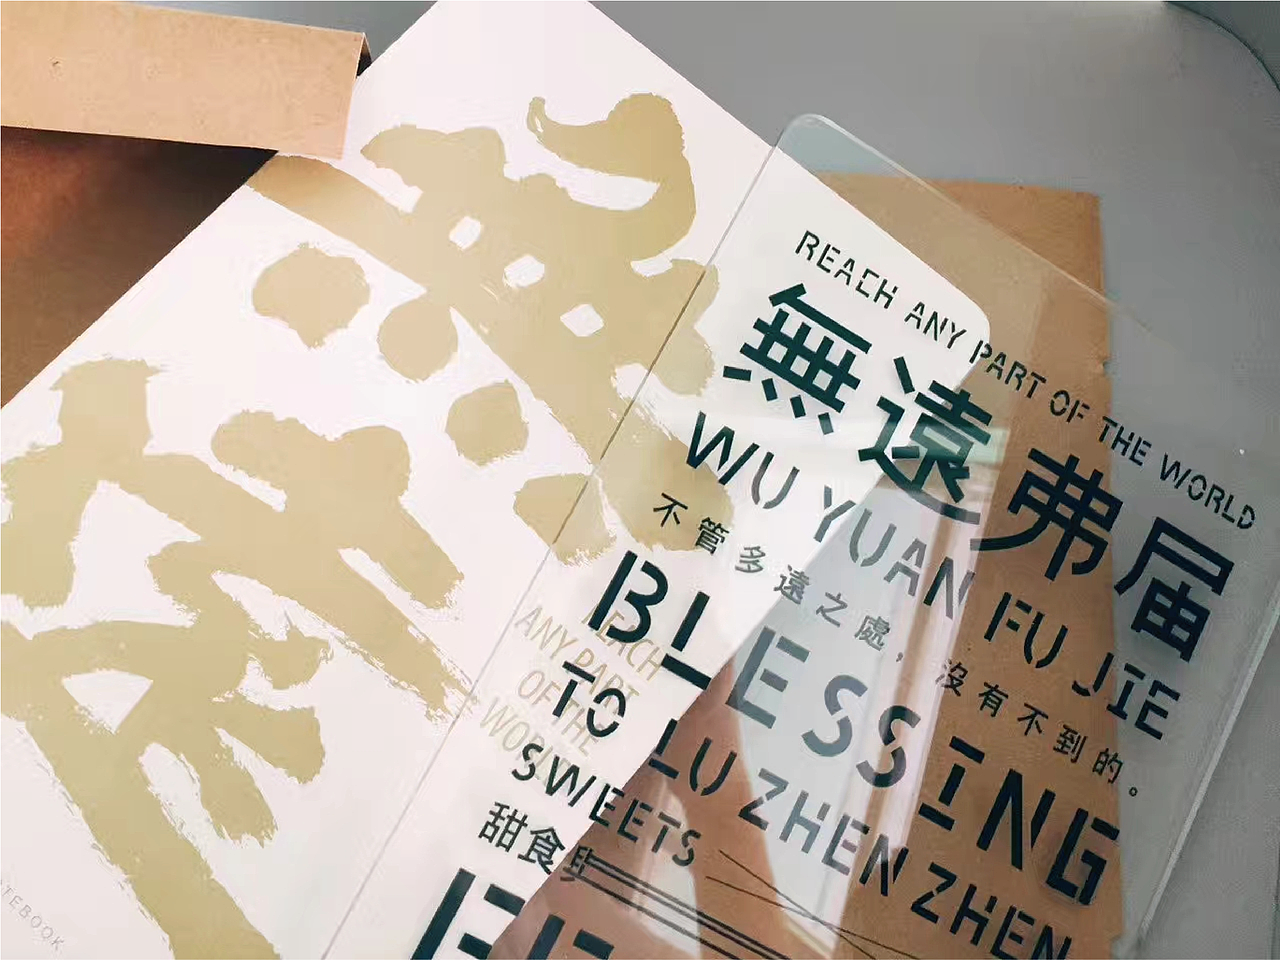 REACH ANY PART OF THE WORLD
無遠弗届
WU YUAN FU JIE
不管多遠之處，沒有不到的。
BLESSING
TO LU ZHEN ZHEN
SWEETS
甜食與
REACH
ANY PART
OF THE
WORLD